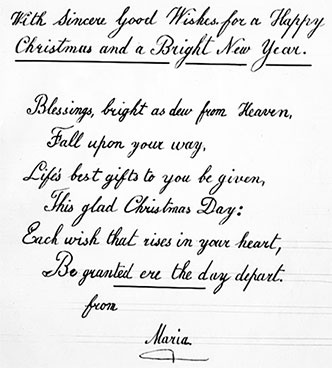 With Sincere Good Wishes for a Happy
Christmas and a Bright New Year.
Blessings, bright as dew from Heaven,
Fall upon your way,
Life's best gifts to you be given,
This glad Christmas Day:
Each wish that rises in your heart,
Be granted ere the day depart.
from
Maria.